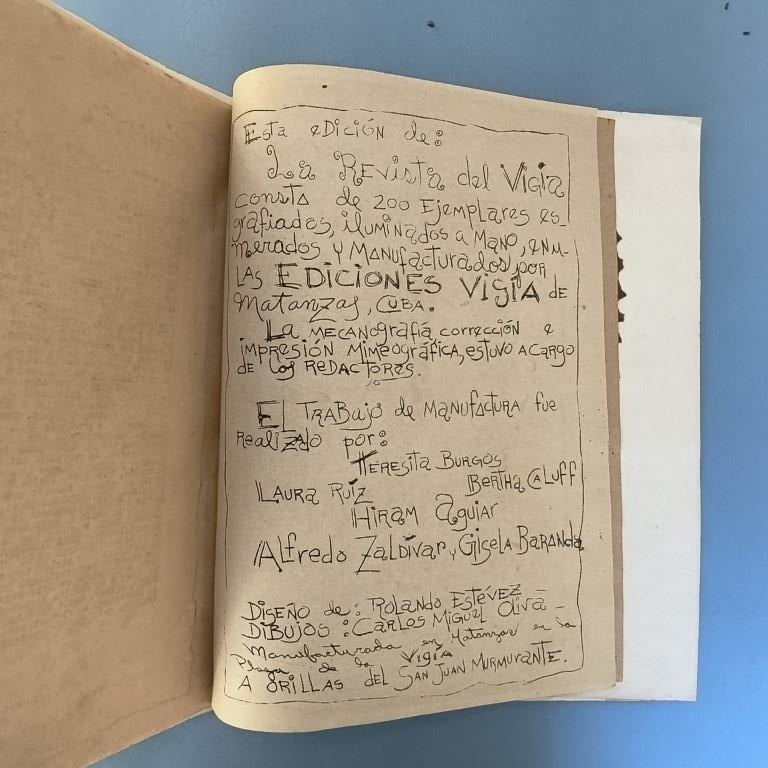 Esta eDición de:
La Revista del Vigía
consta de 200 Ejemplares es-
grafiados, iluminados a mano, enu-
merados y Manufacturados, por
LAS EDICIONES VIGÍA DE
Matanzas, CUBA.
La mecanografía corrección e
impresión mimeográfica, estuvo a cargo
de los REDACTORES.
El TRABajo de manufactura fue
Realizado por:
Teresita Burgos
Laura Ruíz Bertha Caluff
Hiram Aguiar
Alfredo Zaldívar y Gisela Baranda
Diseño de: Rolando Estévez
Dibujos: Carlos Miguel Oliva-
Manufacturada en Matanzas en la
Plaza de la Vigía
A ORILLAS DEL SAN JUAN MURMURANTE.